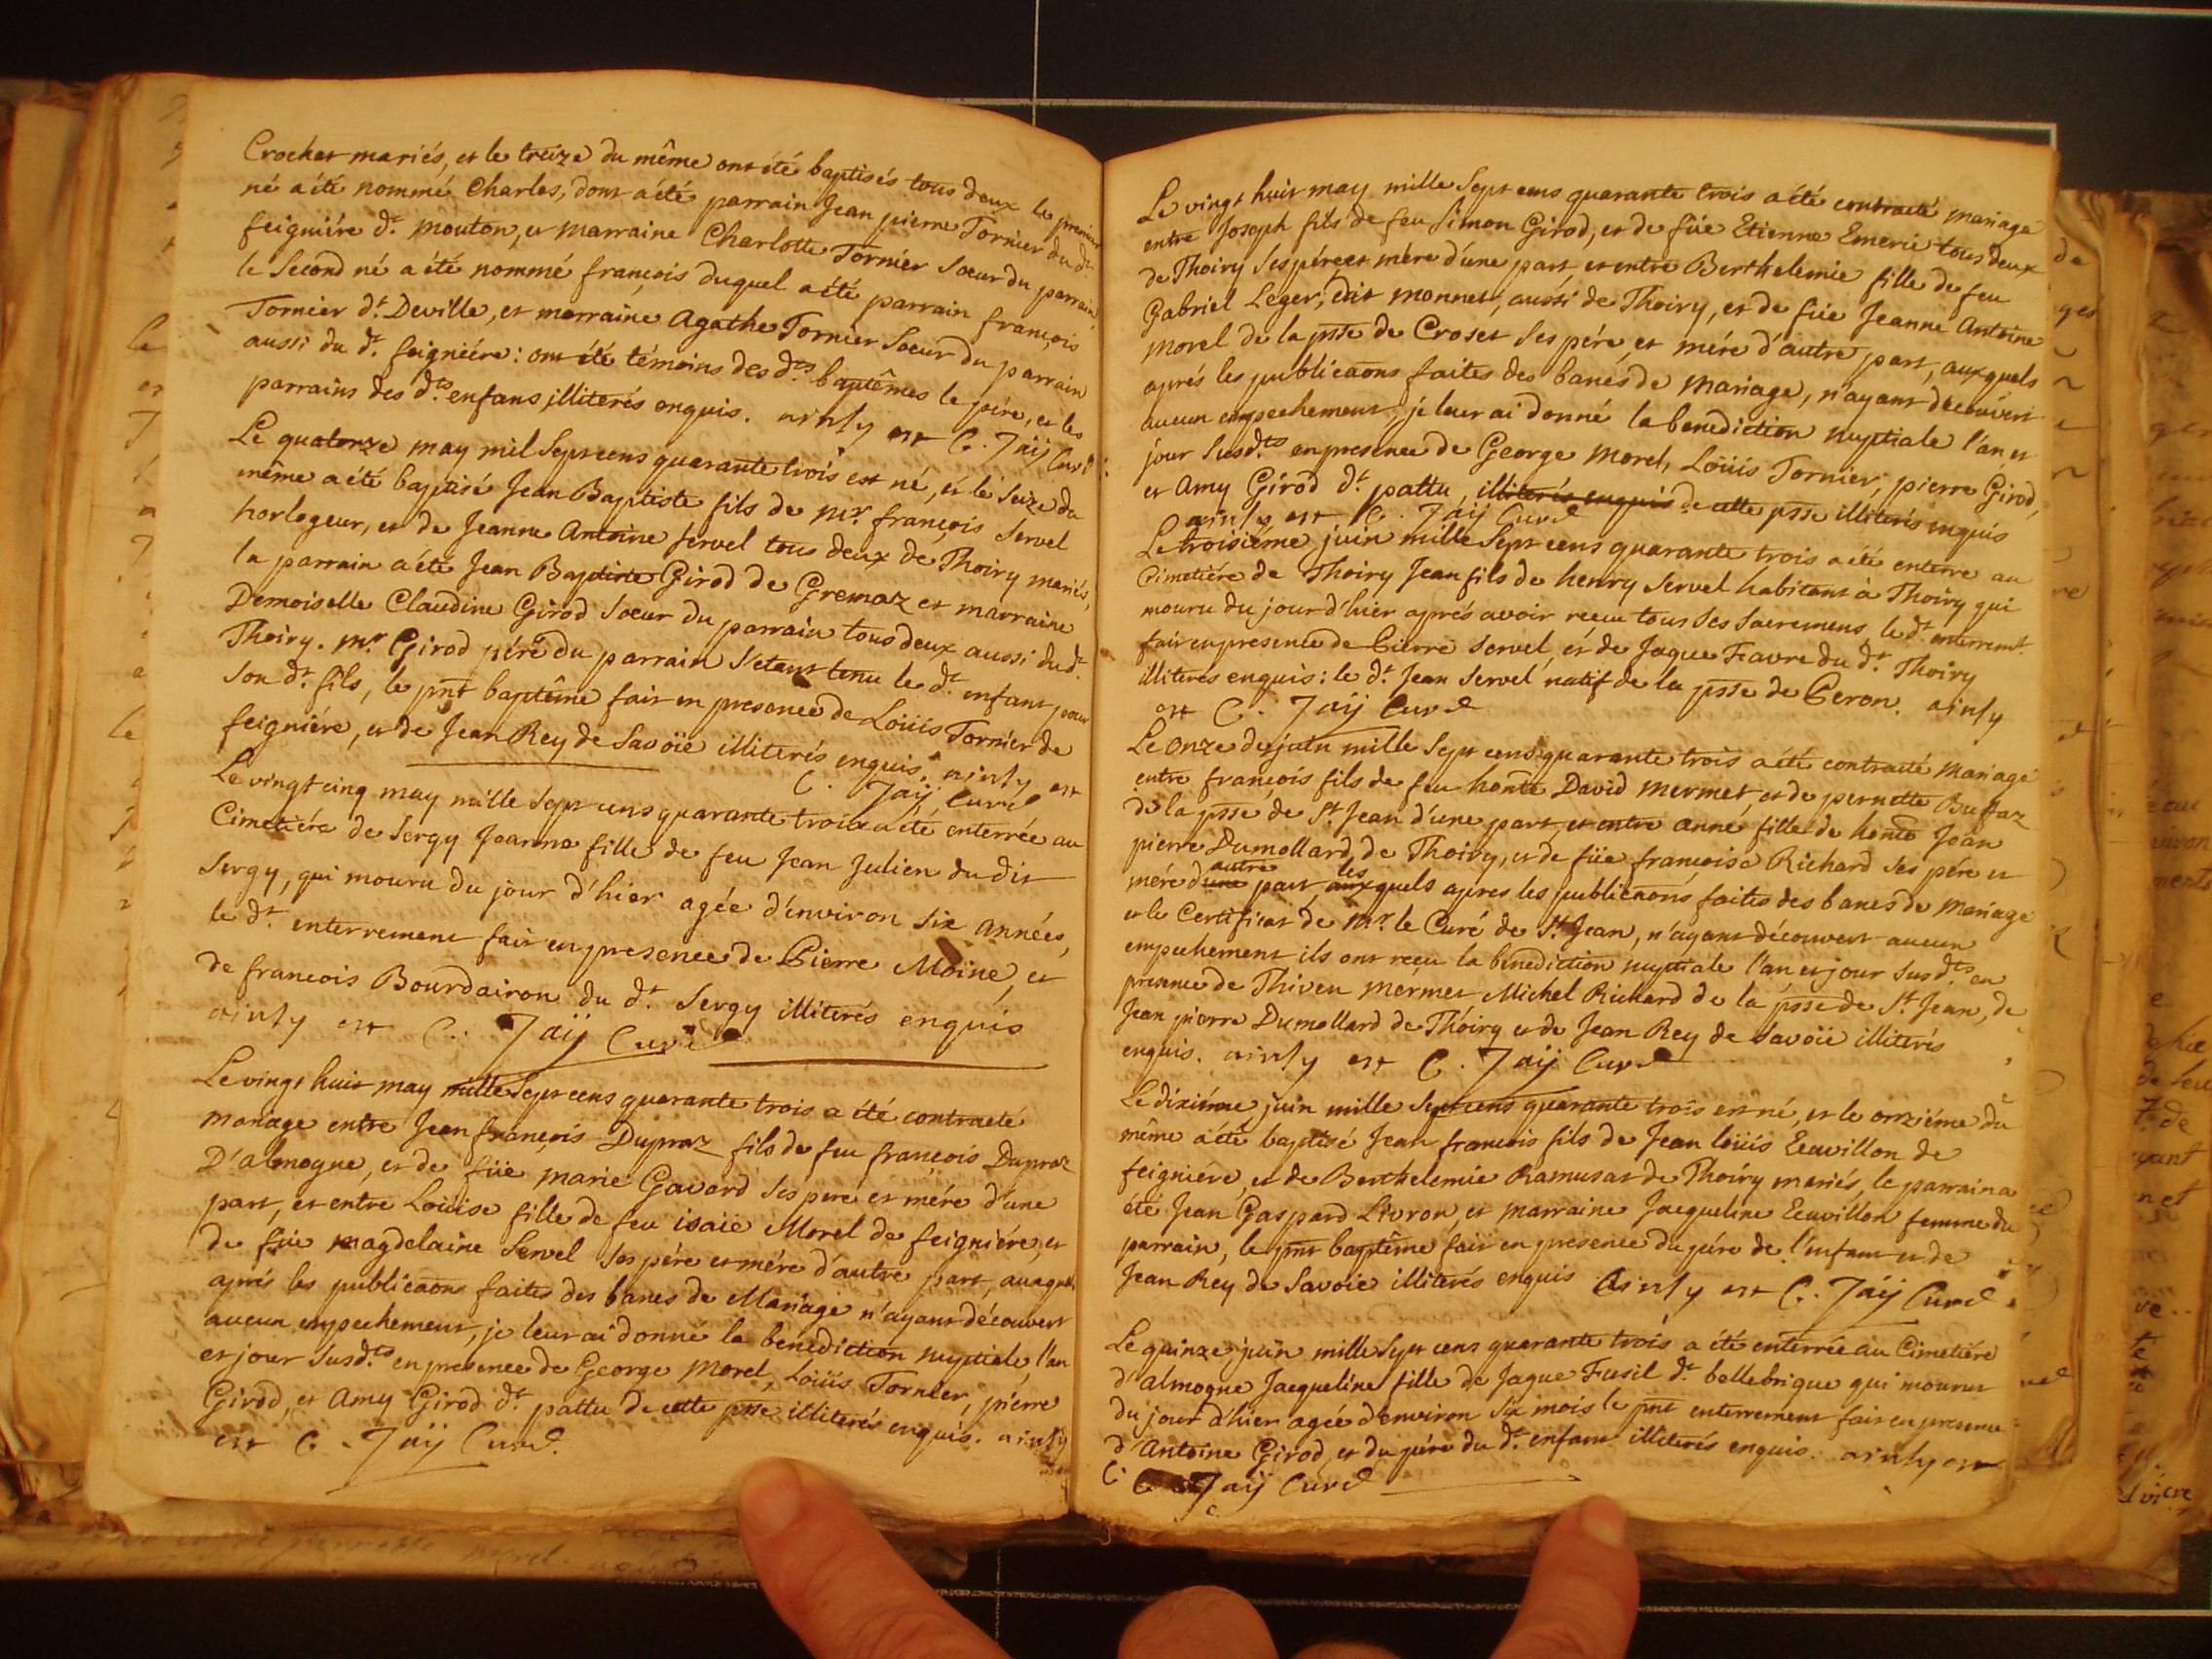 Crochet mariés, et le treize du même ont été baptisés tous deux le premier
né a été nommé Charles, dont a été parrain Jean pierre Tornier du dt.
feigniére dt. mouton, et marraine Charlotte Tornier soeur du parrain,
le second né a été nommé françois duquel a été parrain françois
Tornier dt. Deville, et marraine Agathe Tornier soeur du parrain
aussi du dt. feigniére: ont été témoins des dts. baptêmes le pére, et les
parrains des dts. enfans illiterés enquis. ainsy est C. Jaÿ Curé
Le quatorze may mil sept cens quarante trois est né, et le seize du
même a été baptisé Jean Baptiste fils de mr. françois Servel
horlogeur, et de Jeanne Antoine servel tous deux de Thoiry mariés,
le parrain a été Jean Baptiste Girod de Gremaz et marraine
Demoiselle Claudine Girod soeur du parrain tous deux aussi du dt.
Thoiry. mr. Girod pére du parrain s'etant tenu le dt. enfant pour
son dt. fils, le pnt baptême fait en presence de Loüis Tornier de
feigniére, et de Jean Rey de Savoïe illiterés enquis. ainsy est
C. Jaÿ Curé
Le vingt cinq may mille sept cens quarante trois a été enterrée au
Cimetiére de Sergy Jeanne fille de feu Jean Julien du dit
Sergy, qui mouru du jour d'hier agée d'environ six années,
le dt. enterrement fait en presence de Pierre Moine, et
de francois Bourdairon du dt. Sergy illiterés enquis
ainsy est C. Jaÿ Curé
Le vingt huit may mille sept cens quarante trois a été contracté
mariage entre Jean françois Dupraz fils de feu francois Dupraz
D'almogne, et de füe marie Gavard ses pere et mére d'une
part, et entre Loüise fille de feu isaïe Morel de feigniére, et
de füe magdelaine Servel ses pére et mére d'autre part, auxquels
aprés les publicaons faites des bancs de Mariage n'ayant découvert
aucun empechement, je leur ai donné la benediction nuptiale, l'an
et jour susdts. en presence de George Morel, Loüis Tornier, pierre
Girod, et Amy Girod dt. pattu de cette psse illiterés enquis. ainsy
est C. Jaÿ Curé.
Le vingt huit may mille sept cens quarante trois a été contracté mariage
entre Joseph fils de feu Simon Girod, et de füe Etienne Emerie tous deux
de Thoiry ses pére et mére d'une part, et entre Berthelemie fille de feu
Gabriel Leger, dit monnet, aussi de Thoiry, et de füe Jeanne Antoine
morel de la psse de Croset ses pére, et mére d'autre part, auxquels
aprés les publicaons faites des bancs de Mariage, n'ayant decouvert
aucun empechement, je leur ai donné la benediction nuptiale l'an et
jour susdts. en presence de George morel, Loüis Tornier, pierre Girod,
et Amy Girod dt. pattu, illiterés enquis de cette psse illiterés enquis
ainsy est C. Jaÿ Curé
Le troisiéme juin mille sept cens quarante trois a été enterre au
Cimetiére de Thoiry Jean fils de henry Servel habitant à Thoiry qui
mouru du jour d'hier aprés avoir recu tous ses sacremens, le dt. enterremt.
fait en presence de Pierre Servel, et de Jaque Favre du dt. Thoiry
illiterés enquis: le dt. Jean Servel natif de la psse de Peron. ainsy
est C. Jaÿ Curé
Le onze de juin mille sept cens quarante trois a été contracté mariage
entre françois fils de feu honte David mermet, et de pernette Buffaz
de la psse de St. Jean d'une part, et entre anne fille de honte Jean
pierre Dumollard de Thoiry, et de füe françoise Richard ses pére et
mére d'une autre part, auxquels les aprés les publicaons faites des bancs de mariage
et le Certificat de mr. le Curé de St. Jean, n'ayant découvert aucun
empechement ils ont reçu la benediction nuptiale l'an et jour susdts. en
presence de Thiven mermet Michel Richard de la psse de St. Jean, de
Jean pierre Dumollard de Thoiry et de Jean Rey de Savoïe illiterés
enquis. ainsy est C. Jaÿ Curé
Le dixiéme juin mille sept cens quarante trois est né, et le onziéme du
même a été baptisé Jean francois fils de Jean loüis Ecuvillon de
feigniére, et de Berthelemie Ramusat de Thoiry mariés, le parrain a
été Jean Gaspard Livron, et marraine Jacqueline Ecuvillon femme du
parrain, le pnt baptême fait en presence du pére de l'enfant et de
Jean Rey de Savoïe illiterés enquis Ainsy est C. Jaÿ Curé
Le quinze juin mille sept cens quarante trois a été enterrée au Cimetiére
d'almogne Jacqueline fille de Jaque Fusil dt. bellebrique qui mourut
du jour d'hier agée d'environ six mois le pnt enterrement fait en presence
d'Antoine Girod, et du pére du dt. enfant illiterés enquis. ainsy est
C. Jaÿ Curé